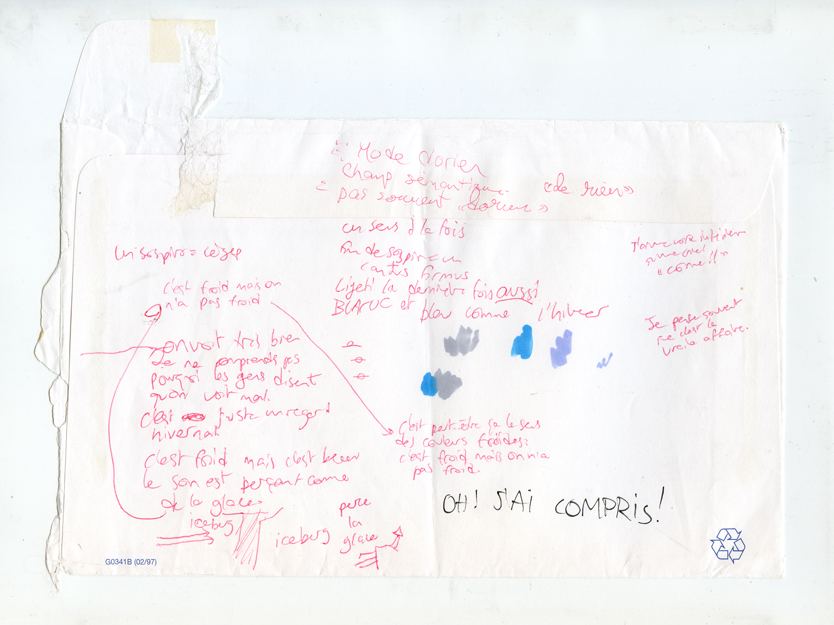 Mode dorien
Champ sémantique « de rien »
= pas souvent « dorien »
un sens à la fois
fin de sospiro = un
cantus firmus
Ligeti la dernière fois aussi
BLANC et bleu comme l'hiver
Un sospiro =
c'est froid mais on
n'a pas froid
on voit très bien
Je ne comprends pas
pourquoi les gens disent
qu'on voit mal.
C'est juste un regard
hivernal
C'est froid mais c'est beau
le son est perçant comme
de la glace
iceberg
iceberg
perce
la
glace
c'est peut-être ça le sens
des couleurs froides :
c'est froid mais on n'a
pas froid.
Je pense souvent
que c'est la
vraie affaire.
OH! J'AI COMPRIS!
G0341B (02/97)